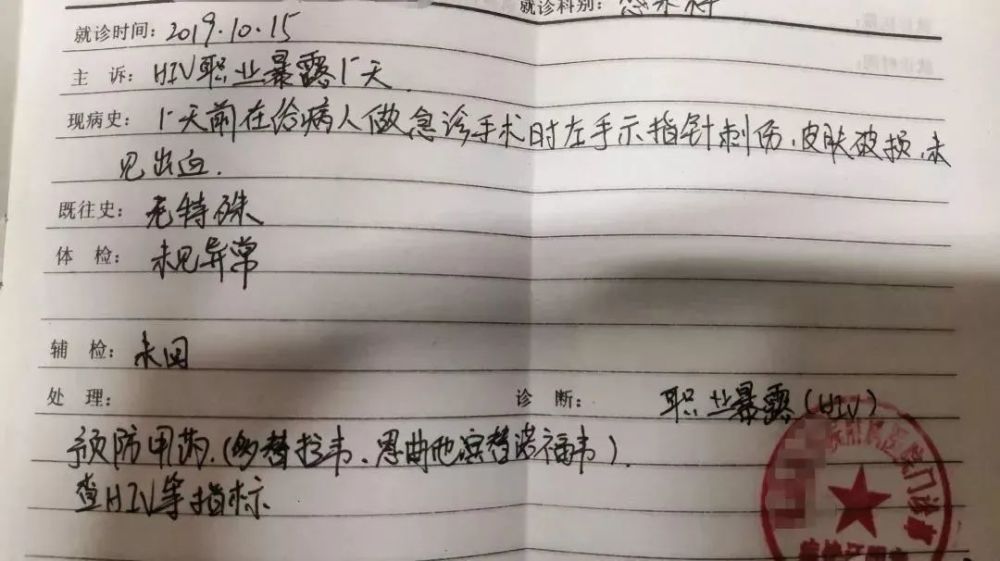 就诊科别：感染科
就诊时间：2019.10.15
主 诉：HIV职业暴露1天
现病史：1天前在给病人做急诊手术时左手示指针刺伤，皮肤破损，未
见出血.
既往史：无特殊
体 检：未见异常
辅 检：未回
处 理：
诊 断：职业暴露(HIV)
预防用药.(多替拉韦、恩曲他滨替诺福韦).
查HIV等指标
医院门诊部